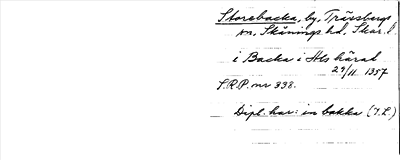 Storebacka, by, Trässbergs
sn, Skånings hd, Skar. l.
i Backa i Als hárat
29/11 1357
S.R.P. nr 338.
Dipl. har: in bakka (I.L.)